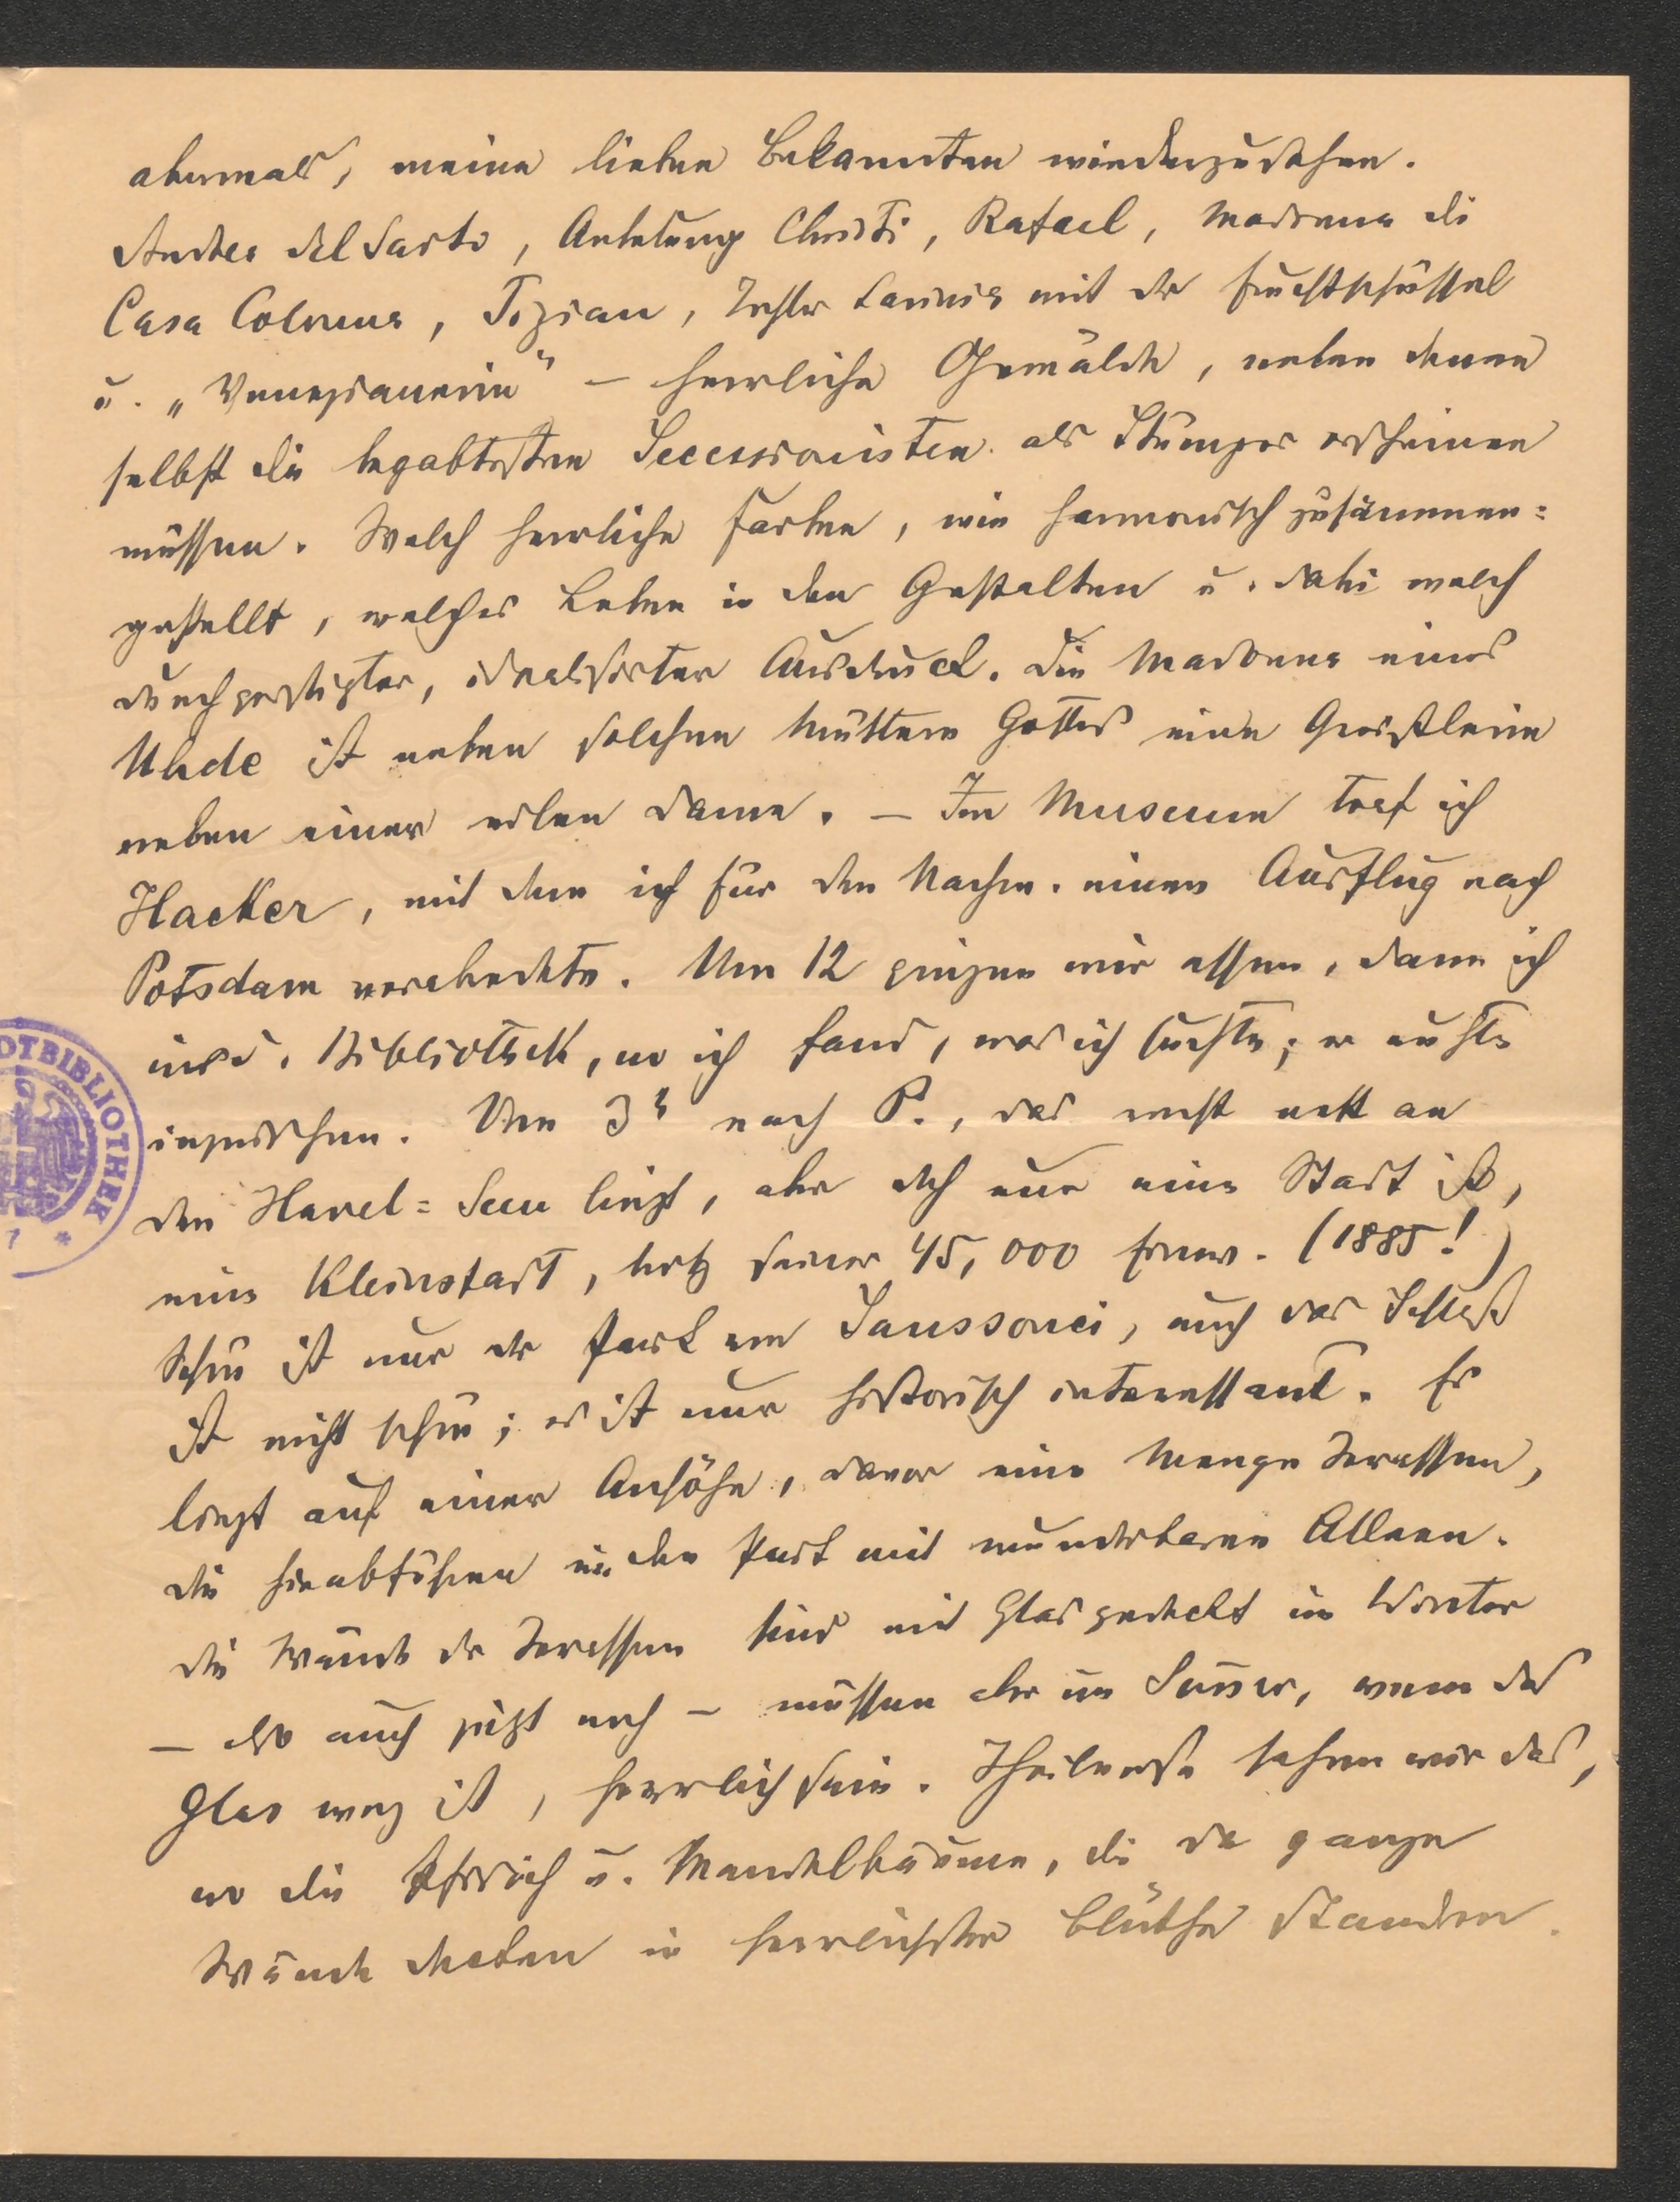 abermals, meine lieben Bekannten wiederzusehen.
Andrea del Sarto, Anbetung Christi, Rafael, Madonna di
Casa Colonna, Tizian, Tochter Lavinia mit der Fruchtschüssel
u. „Venezianerin“ – herrliche Gemälde, neben denen
selbst die begabtesten Secessionisten als Stümper erscheinen
müssen. Welch herrliche Farben, wie harmonisch zusammen=
gestellt, welches Leben in den Gestalten u. dabei welch
durchgeistigter, idealisirter Ausdruck. Die Madonna eines
Uhde ist neben solchen Müttern Gottes eine
neben einer edlen Dame. – Im Museum traf ich
Hacker, mit dem ich für den Nachm. einen Ausflug nach
Potsdam verabredete. Um 12 gingen wir essen, dann ich
in d. Bibliothek, wo ich fand, was ich suchte; er ruhte
inzwischen. Um 3 nach P., das recht nett an
den Havel=Seen liegt, aber doch nur eine Stadt ist,
eine Kleinstadt, trotz seiner 45,000 Einw. (1885!)
Schön ist nur der Park von Sanssouci, auch das Schloß
ist nicht schön; es ist nur historisch interessant. Es
liegt auf einer Anhöhe, davor eine Menge Terassen,
die hinabführen in den Park mit wunderbaren Alleen.
Die Wände der Terassen sind mit Glas gedeckt im Winter
– also auch jetzt noch – müssen aber im Sommer, wenn das
Glas weg ist, herrlich sein. Theilweise sahen wir das,
wo die Pfirsich u. Mandelbäume, die da ganze
Wände decken in herrlichster Blüthe standen.
DTBIBLIOTHEK
7 *